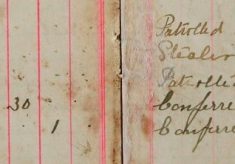 Patrolled
Stealin
Patrolled
30 Conferre
1 Conferre